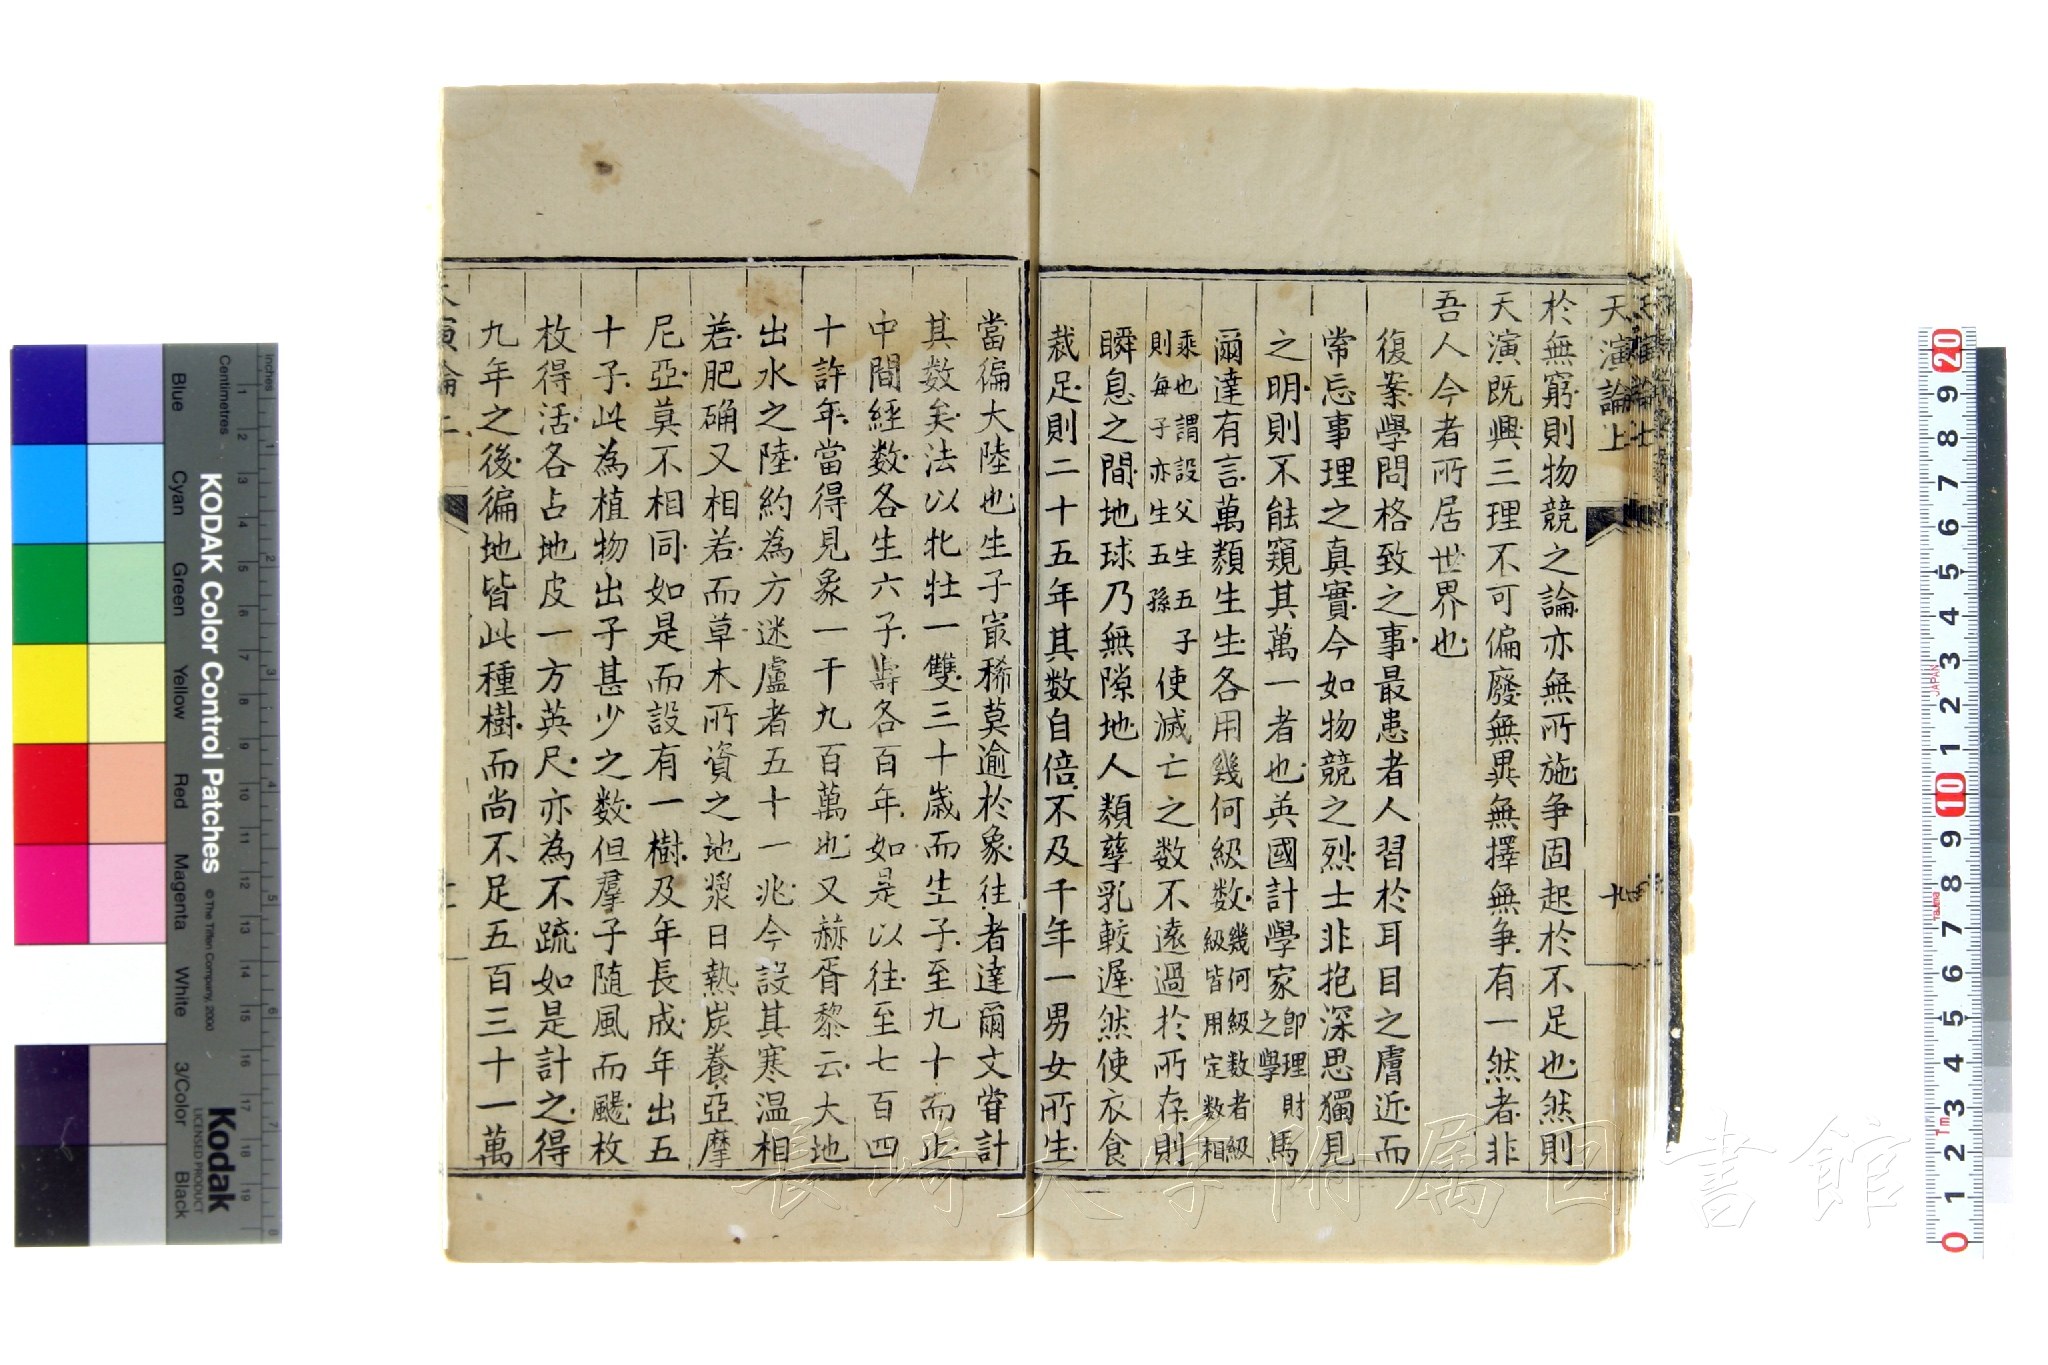 天演論上
十
於無窮則物競之論亦無所施争固起於不足也然則
天演既興三理不可偏廢無異無擇無争有一然者非
吾人今者所居世界也
復案學問格致之事最患者人習於耳目之膚近而
常忘事理之真實今如物競之烈士非抱深思獨見
之明則不能窺其萬一者也英國計學家即理財之學馬
爾達有言萬類生生各用幾何級數幾何級数者級級皆用定数相
乘也謂設父生五子則每子亦生五孫使滅亡之数不遠過於所存則
瞬息之間地球乃無隙地人類孳乳較遲然使衣食
裁足則二十五年其数自倍不及千年一男女所生
當徧大陸也生子最稀莫逾於象往者達爾文嘗計
其数矣法以牝牡一雙三十歲而生子至九十而止
中間經数各生六子壽各百年如是以往至七百四
十許年當得見象一千九百萬也又赫胥黎云大地
出水之陸約為方迷盧者五十一兆今設其寒温相
若肥确又相若而草木所資之地漿日熱炭養亞摩
尼亞莫不相同如是而設有一樹及年長成年出五
十子此為植物出子甚少之数但羣子隨風而颺枚
枚得活各占地皮一方英尺亦為不疏如是計之得
九年之後徧地皆此種樹而尚不足五百三十一萬
KODAK Color Control Patches
© The Tiffen Company, 2000
Kodak
LICENSED PRODUCT
inches
Centimetres
Blue
Cyan
Green
Yellow
Red
Magenta
White
3/Color
Black
20
9
8
7
6
5
4
3
2
1
10
9
8
7
6
5
4
3
2
1
0
JAPAN
Tajima
Tm
長崎大学附属図書館